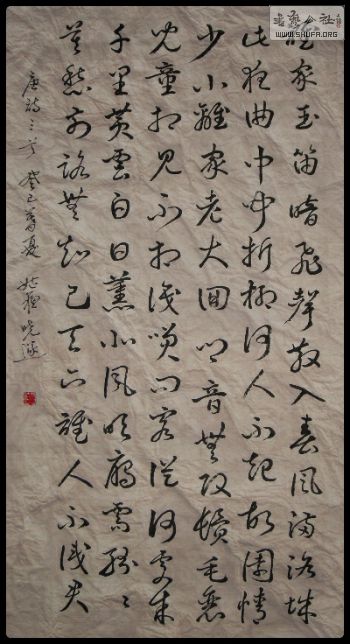 誰家玉笛暗飛聲散入春風満洛城
此夜曲中闻折柳何人不起故園情
少小離家老大回乡音無改鬢毛衰
兒童相见不相識笑问客從何處來
千里黄雲白日薰北風吹雁雪紛々
莫愁前路無知己天下誰人不識君
唐詩三首 癸巳首夏
WWW.SHUFA.ORG